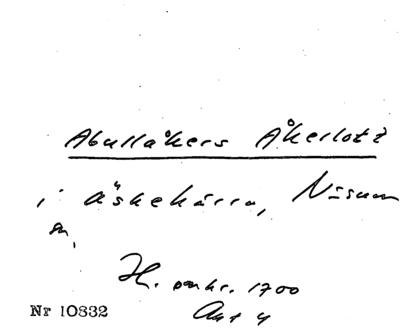 Abullåkers Åkerlott
i Äskekärr, Näsum
sn,
H. omkr. 1700
Ant 4
Nr 10832